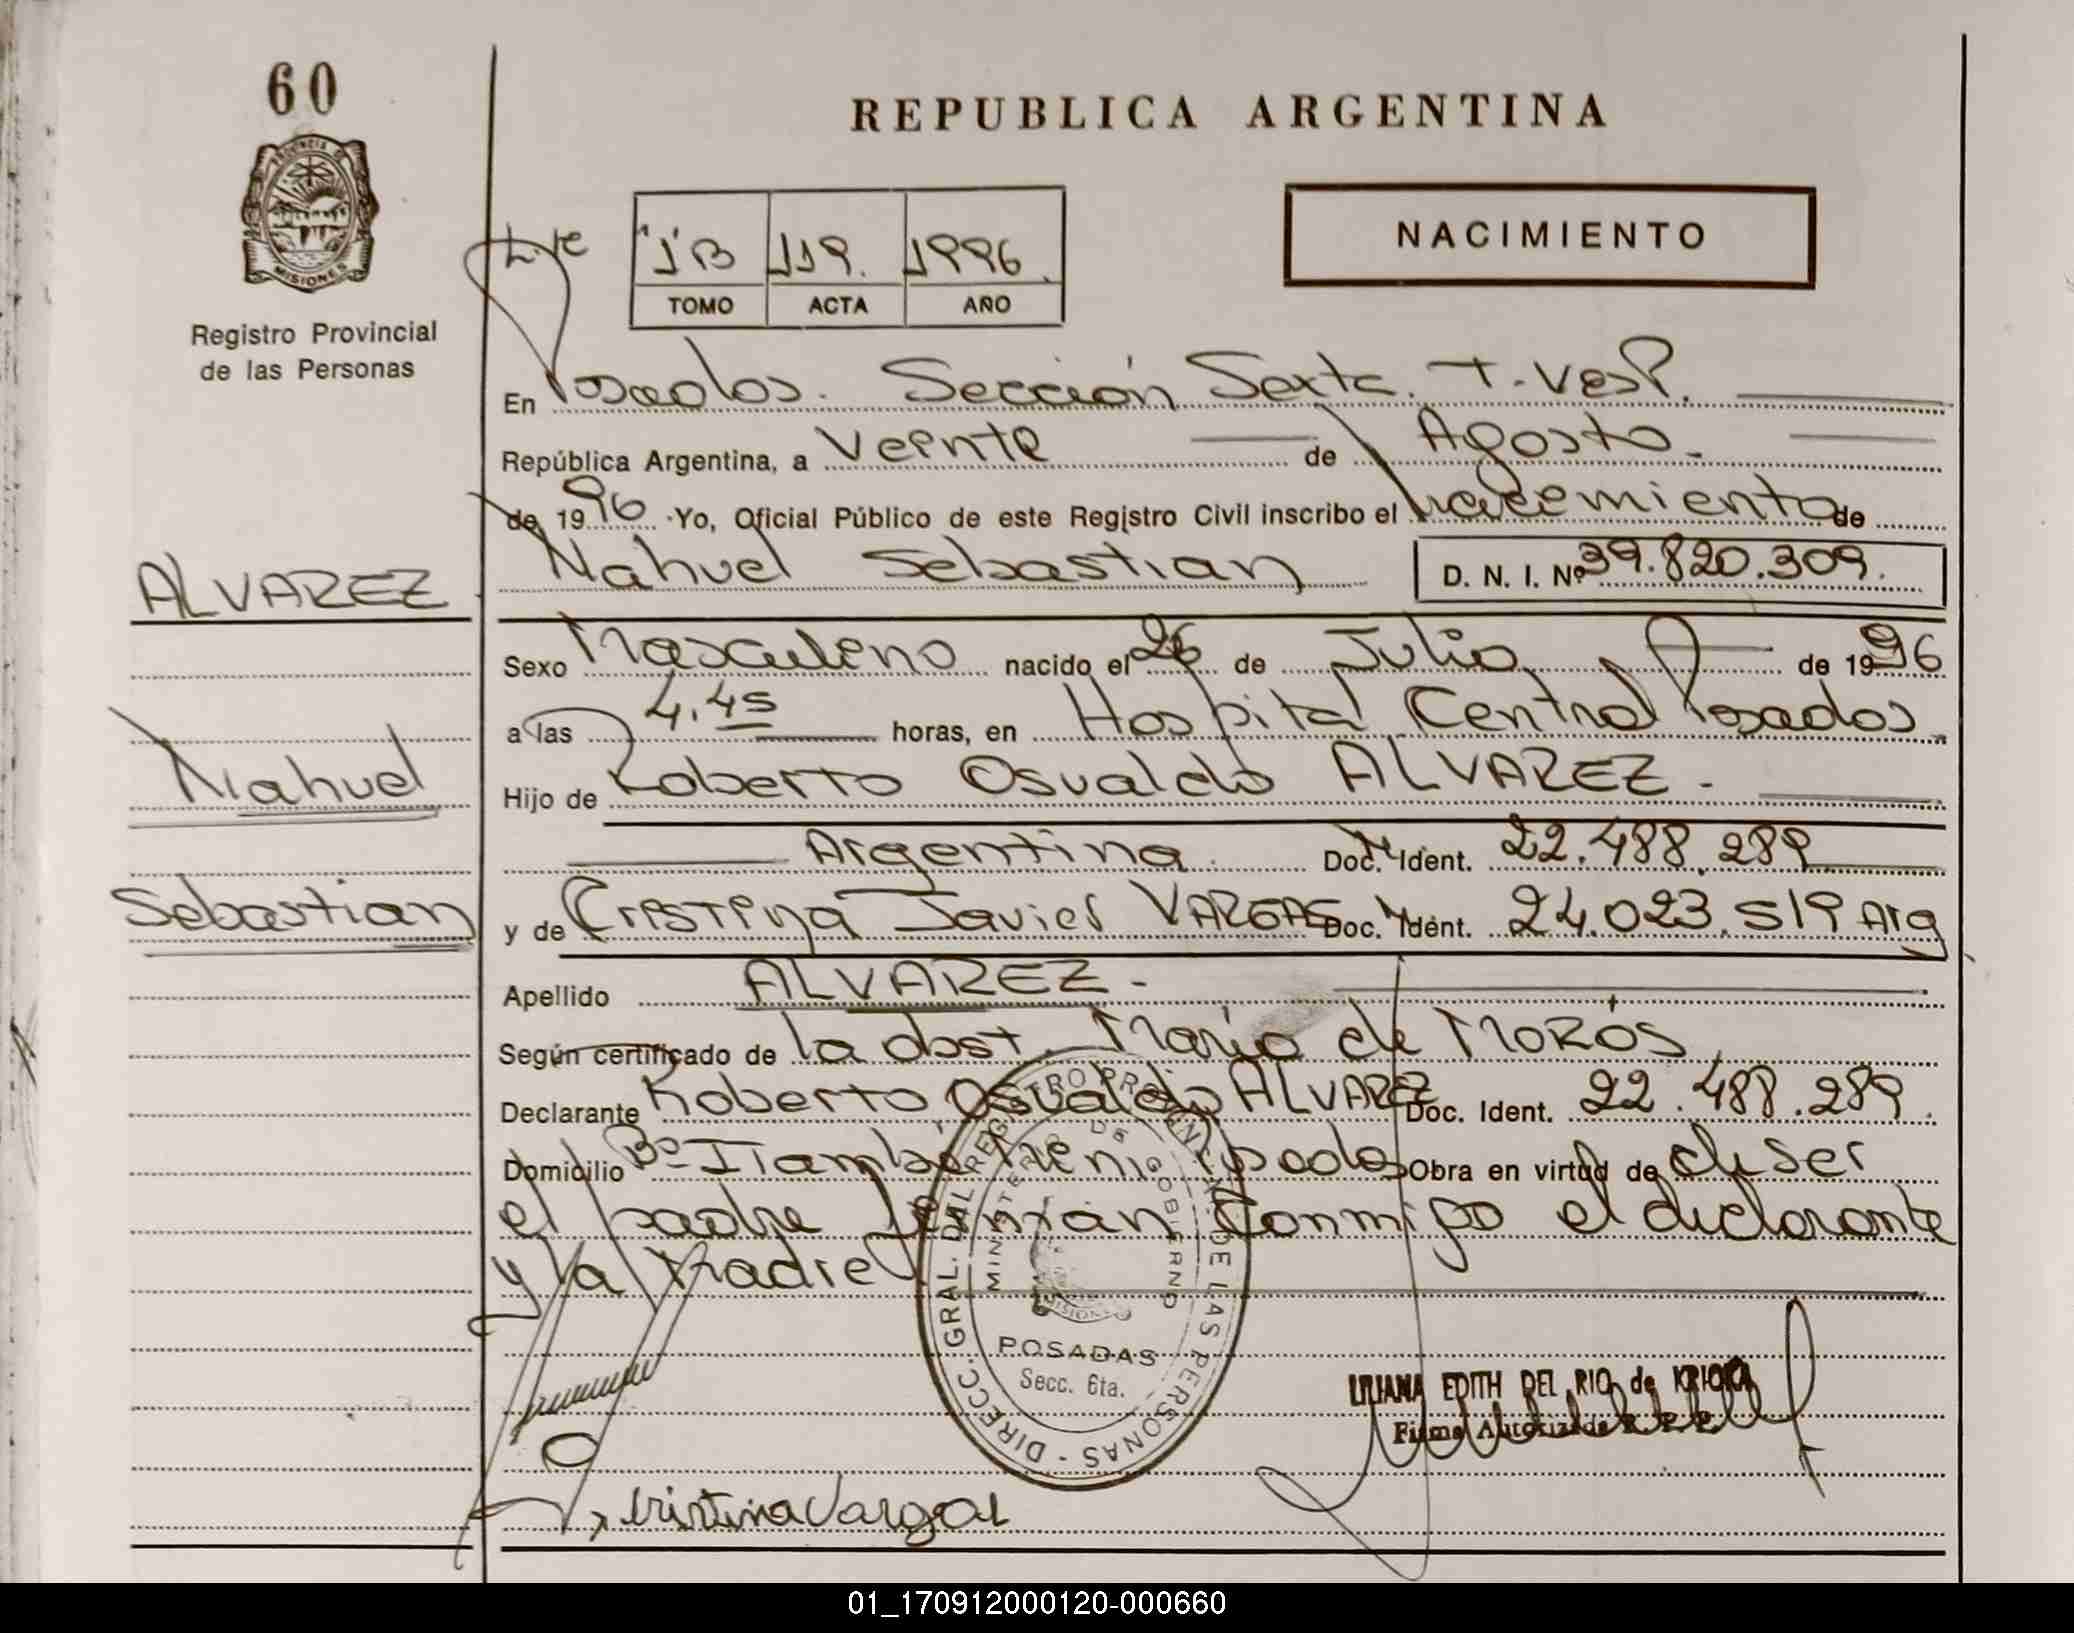 60
REPUBLICA ARGENTINA
PROVINCIA DE
MISIONES
Registro Provincial
de las Personas
"1"B 119. 1996
TOMO ACTA AÑO
NACIMIENTO
En Posadas. Sección Sexta. T. Vesp.
República Argentina, a Veinte de Agosto
de 1996 Yo, Oficial Público de este Registro Civil inscribo el nacimiento de
ALVAREZ
Nahuel Sebastian D. N. I. Nº 39.820.309.
Sexo Masculino nacido el 26 de Julio de 1996
a las 4.45 horas, en Hospital Central Posadas
Nahuel
Hijo de Roberto Osvaldo ALVAREZ.
Argentina Doc. Ident. 22.488.289
Sebastian
y de Cristina Javier VARGAS Doc. Ident. 24.023.519 Arg
Apellido ALVAREZ.
Según certificado de la obst. María de MOROS
Declarante Roberto Osvaldo ALVAREZ Doc. Ident. 22.488.289.
Domicilio Bº Itambé Miní Posadas Obra en virtud de de ser
el padre firman conmigo el declarante
y la Madre
DIRECC. GRAL. DEL REGISTRO PROVINCIAL DE LAS PERSONAS
MINISTERIO DE GOBIERNO
MISIONES
POSADAS
Secc. 6ta.
LILIANA EDITH DEL RIO de
Firma Autorizada R. P. P.
Cristina Vargas
01_170912000120-000660